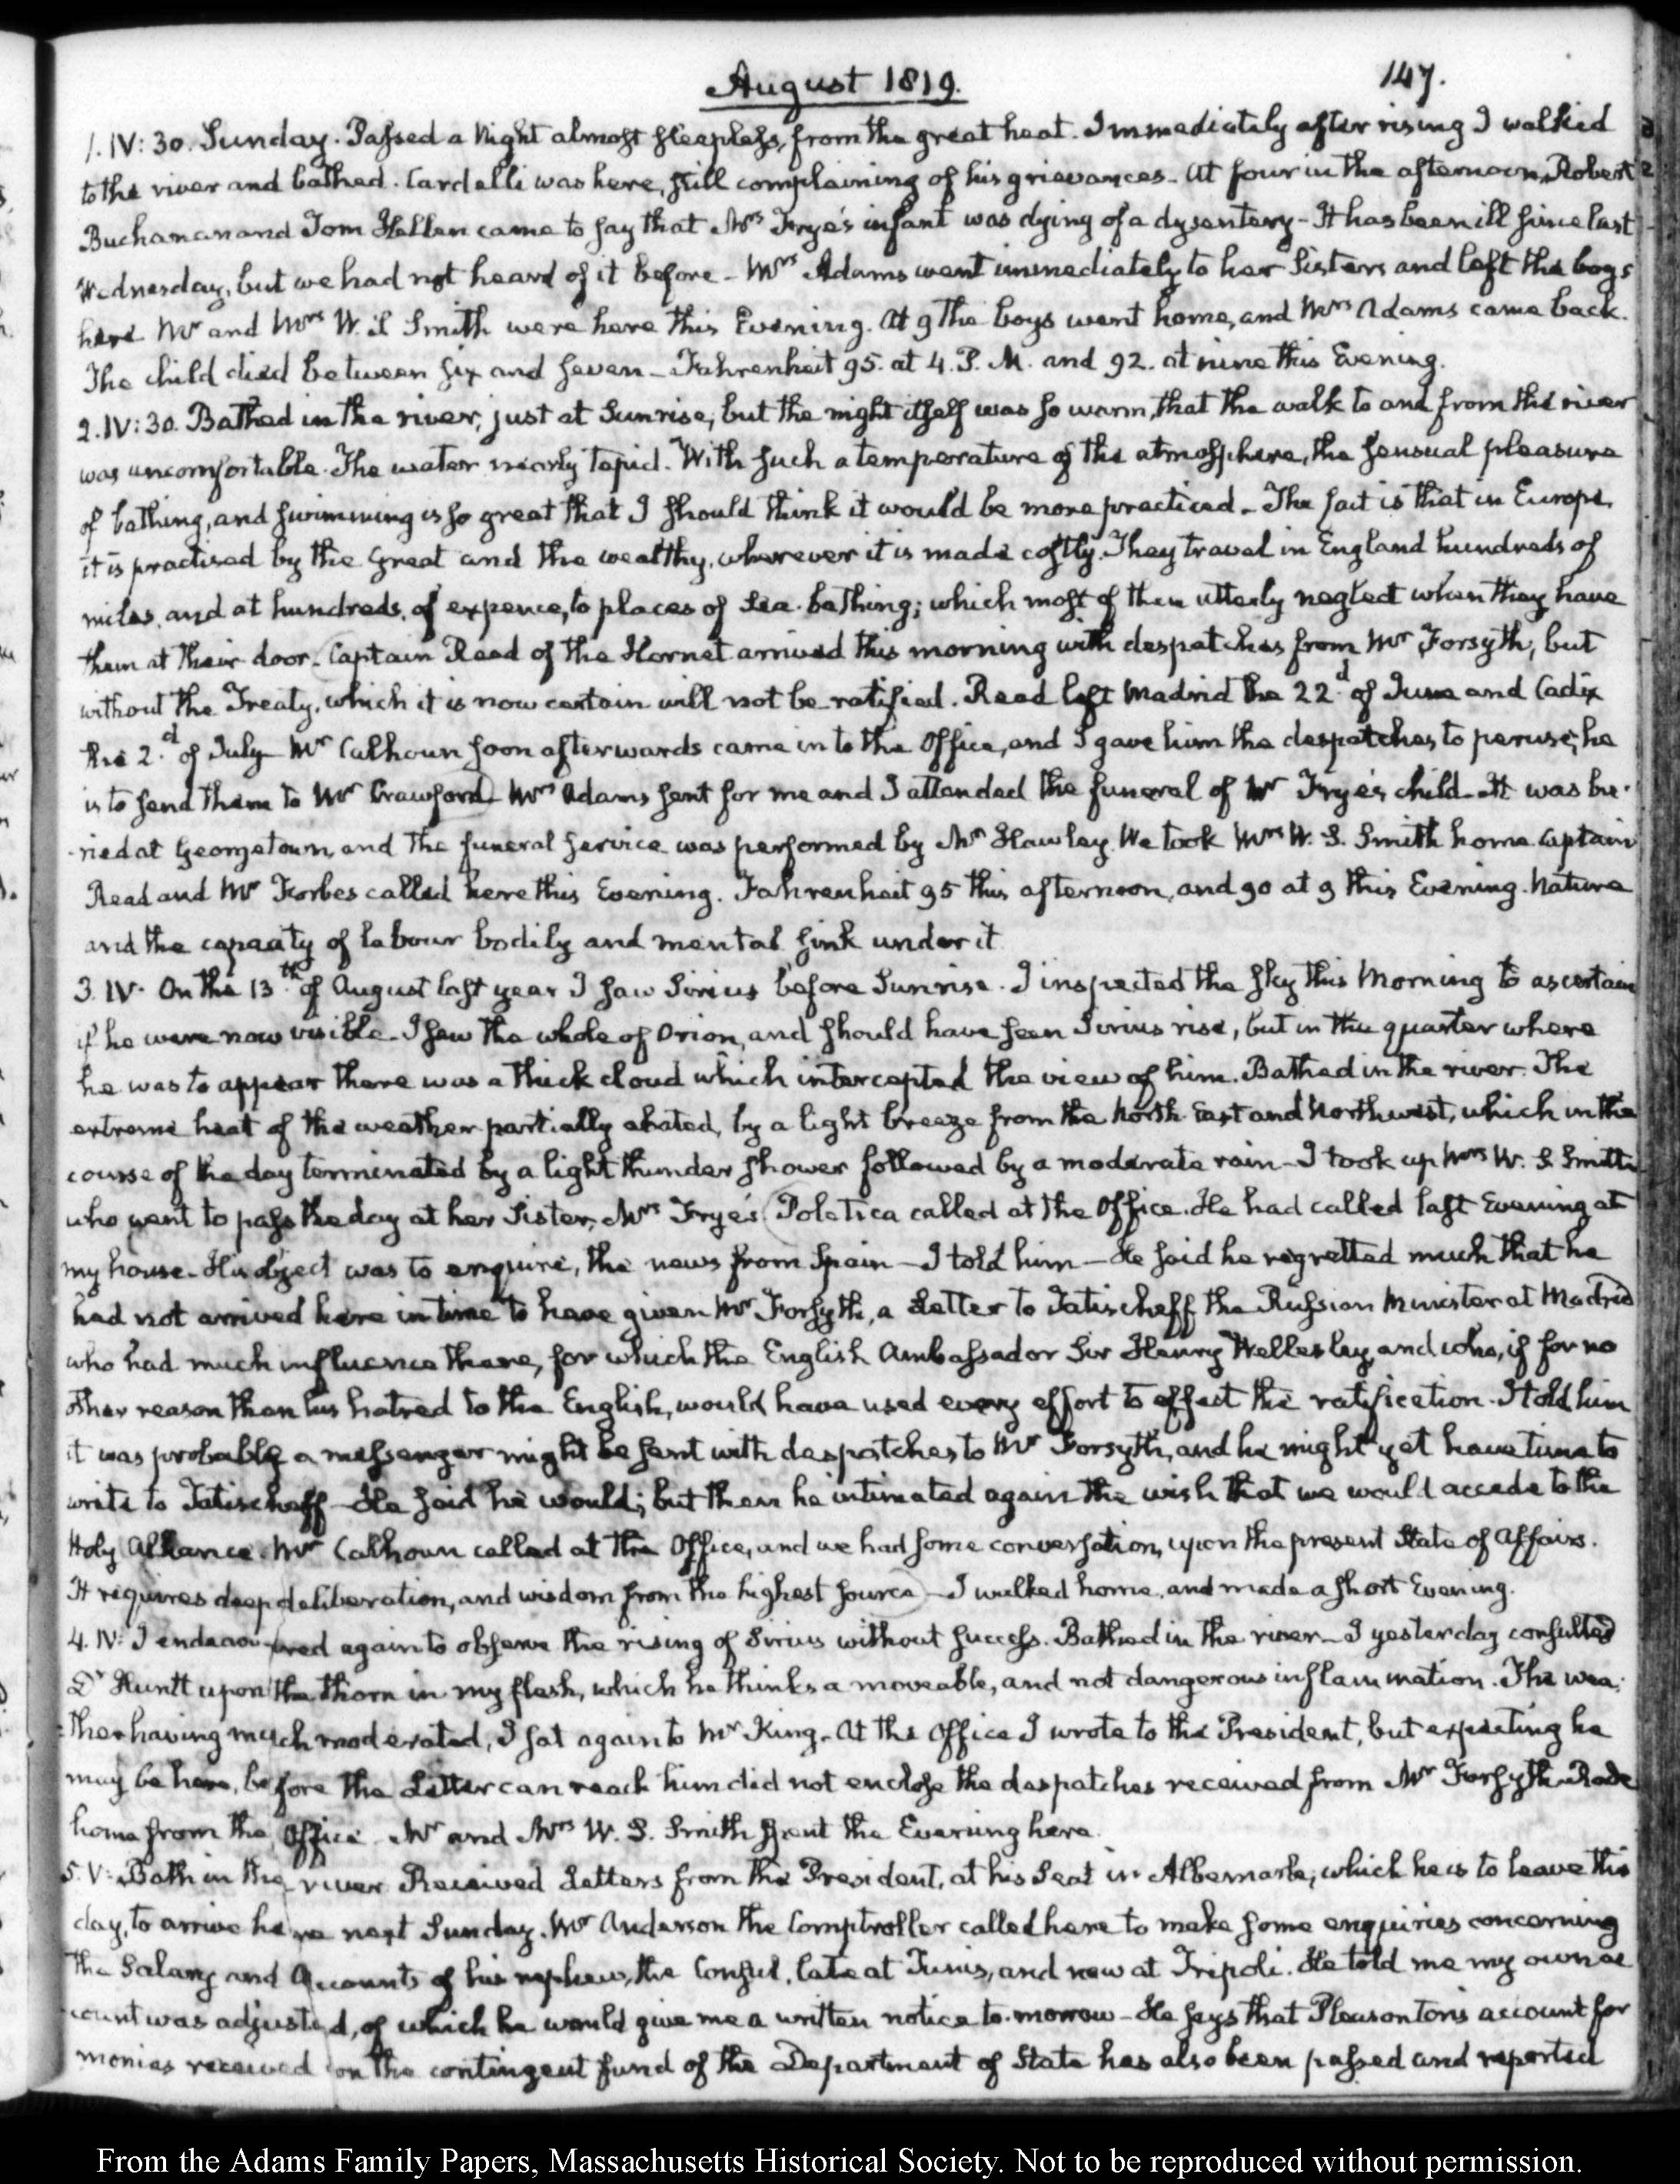 August 1819.
147.
1. IV:30. Sunday. Passed a Night almost sleepless, from the great heat. Immediately after rising I walked
to the river and bathed. Cardelli was here, still complaining of his grievances. At four in the afternoon, Robert
Buchanan and Tom Hellen came to say that Mrs Frye's infant was dying of a dysentery - It has been ill since last
Wednesday, but we had not heard of it before - Mrs Adams went immediately to her Sisters and left the boys
here Mr and Mrs W. S. Smith were here this Evening. At 9 the boys went home, and Mrs Adams came back.
The child died between six and seven - Fahrenheit 95. at 4. P. M. and 92. at nine this Evening.
2. IV:30. Bathed in the river, just at Sunrise, but the night itself was so warm, that the walk to and from the river
was uncomfortable. The water nearly tepid. With such a temperature of the atmosphere, the sensual pleasure
of bathing, and swimming is so great that I should think it would be more practiced - The fact is that in Europe,
it is practised by the Great and the wealthy, wherever it is made costly. They travel in England hundreds of
miles, and at hundreds of expence, to places of Sea-bathing; which most of them utterly neglect when they have
them at their door. Captain Read of the Hornet arrived this morning with despatches from Mr Forsyth, but
without the Treaty, which it is now certain will not be ratified. Read left Madrid the 22.d of June and Cadix
the 2.d of July - Mr Calhoun soon afterwards came in to the Office, and I gave him the despatches to peruse; he
is to send them to Mr Crawford. Mrs Adams sent for me and I attended the funeral of Mr Frye's child - It was bu-
-ried at Georgetown, and the funeral service was performed by Mr Hawley. We took Mrs W. S. Smith home. Captain
Read and Mr Forbes called here this Evening. Fahrenheit 95 this afternoon, and 90 at 9 this Evening. Nature
and the capacity of labour bodily and mental sink under it
3. IV. On the 13.th of August last year I saw Sirius before Sunrise. I inspected the sky this Morning to ascertain
if he were now visible. I saw the whole of Orion, and should have seen Sirius rise, but in the quarter where
he was to appear there was a thick cloud which intercepted the view of him. Bathed in the river. The
extreme heat of the weather partially abated, by a light breeze from the North East and Northwest, which in the
course of the day terminated by a light thunder shower followed by a moderate rain - I took up Mrs W. S. Smith
who went to pass the day at her Sister, Mrs Frye's Poletica called at the Office. He had called last Evening at
my house - His object was to enquire, the news from Spain - I told him - He said he regretted much that he
had not arrived here in time to have given Mr Forsyth, a Letter to Tatischeff the Russian Minister at Madrid
who had much influence there, for which the English Ambassador Sir Henry Wellesley, and who, if for no
other reason than his hatred to the English, would have used every effort to effect the ratification. I told him
it was probable a messenger might be sent with despatches to Mr Forsyth, and he might yet have time to
write to Tatischeff - He said he would; but then he intimated again the wish that we would accede to the
Holy Alliance. Mr Calhoun called at the Office, and we had some conversation, upon the present State of Affairs.
It requires deep deliberation, and wisdom from the highest source - I walked home, and made a short Evening.
4. IV: I endeavoured again to observe the rising of Sirius without success. Bathed in the river - I yesterday consulted
Dr Huntt upon the thorn in my flesh, which he thinks a moveable, and not dangerous inflammation. The wea-
-ther having much moderated, I sat again to Mr King - At the Office I wrote to the President, but expecting he
may be here, before the Letter can reach him did not enclose the despatches received from Mr Forsyth. Rode
home from the Office. Mr and Mrs W. S. Smith spent the Evening here.
5. V: Bath in the river Received Letters from the President, at his Seat in Albemarle, which he is to leave this
day, to arrive here next Sunday. Mr Anderson the Comptroller called here to make some enquiries concerning
the Salary and Accounts of his nephew, the Consul, late at Tunis, and now at Tripoli. He told me my own ac
count was adjusted, of which he would give me a written notice to-morrow - He says that Pleasonton's account for
monies received on the contingent fund of the Department of State has also been passed and reported
From the Adams Family Papers, Massachusetts Historical Society. Not to be reproduced without permission.